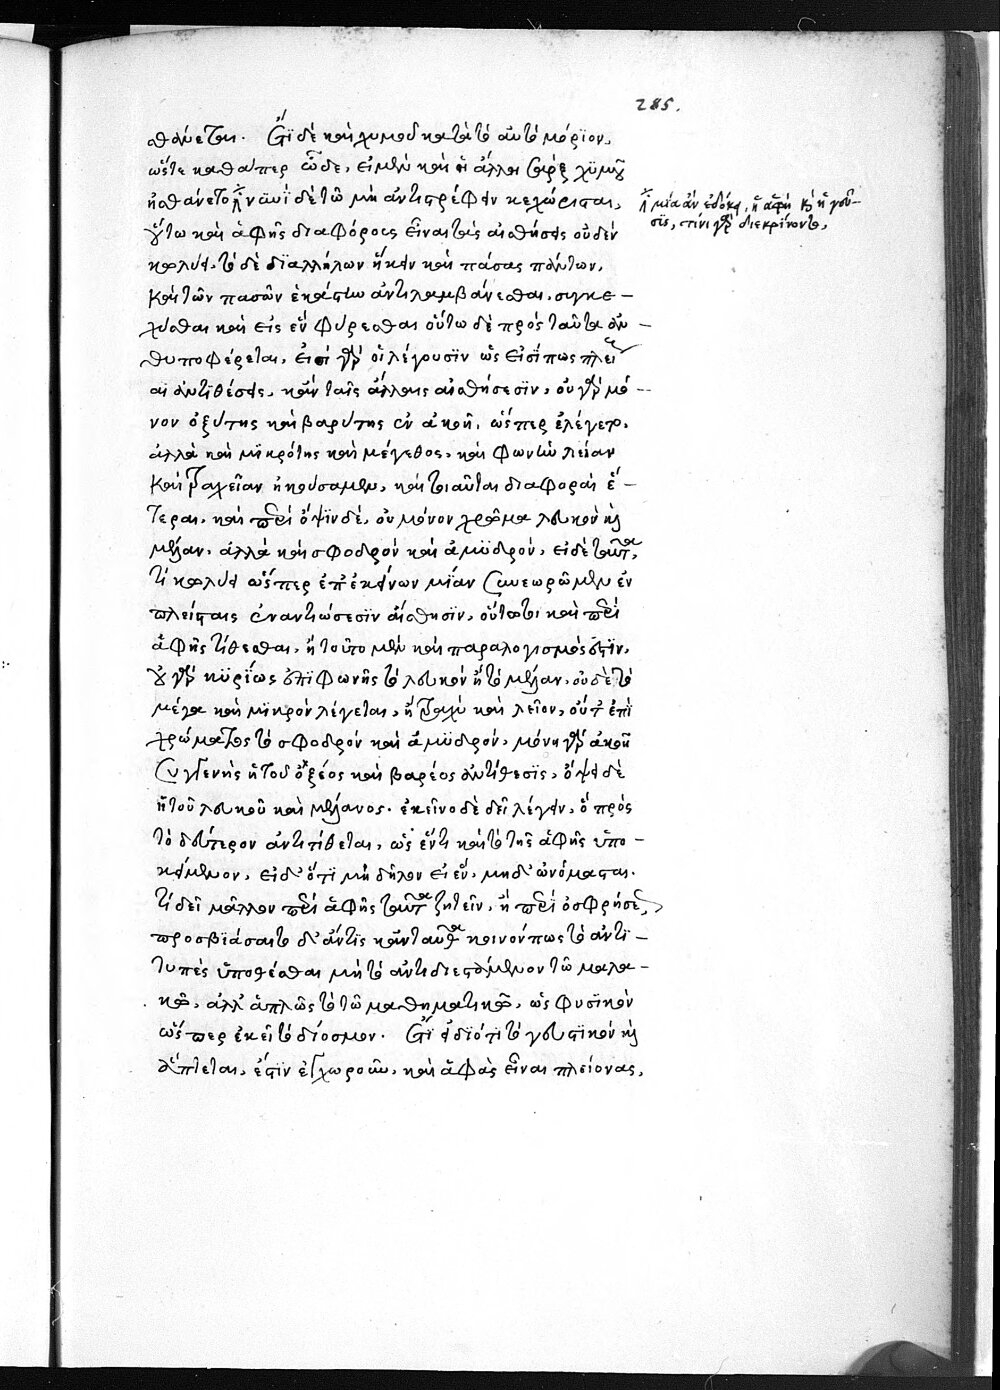 285.
σθάνεται. Ἔτι δὲ καὶ χυμοῦ κατὰ τὸ αὐτὸ μόριον,
ὥστε καθάπερ ὧδε, εἰ μὲν καὶ ἡ ἄλλη σὰρξ χυμοῦ
ἠσθάνετο νυνὶ δὲ τῶ μὴ ἀντιστρέφειν κεχώρισται,
οὕτω καὶ ἁφῆς διαφόρους εἶναι τὰς αἰσθήσεις οὐδὲν
κωλύει. τὸ δὲ δι' ἀλλήλων ἥκειν καὶ πάσας πάντων,
καὶ τῶν πασῶν ἑκάστω ἀντιλαμβάνεσθαι, συγκε-
χύσθαι καὶ εἰς ἓν φύρεσθαι οὕτω δὲ πρὸς ταῦτα ἀν-
θυποφέρεται, εἰσὶ γὰρ οἳ λέγουσιν ὡς εἰσί πως πλείους
αἱ ἀντιθέσεις, κἀν ταῖς ἄλλαις αἰσθήσεσιν, οὐ γὰρ μό-
νον ὀξύτης καὶ βαρύτης ἐν ἀκοῆ, ὥσπερ ἐλέγετο,
ἀλλὰ καὶ μικρότης καὶ μέγεθος, καὶ φωνὴν λείαν
καὶ τραχεῖαν ἠκούσαμεν, καὶ τοιαῦται διαφοραὶ ἕ-
τεραι, καὶ περὶ ὄψιν δὲ, οὐ μόνον χρῶμα λευκὸν καὶ
μέλαν, ἀλλὰ καὶ σφοδρὸν καὶ ἀμυδρόν, εἰ δὲ ταῦτα,
τί κωλύει ὥσπερ ἐπ' ἐκείνων μίαν συνεωρῶμεν ἐν
πλείσταις ἐναντιώσεσιν αἴσθησιν, οὕτω καὶ περὶ
ἁφῆς τίθεσθαι, ἢ τοῦτο μὲν καὶ παραλογισμός ἐστιν,
οὐ γὰρ κυρίως ἐπὶ φωνῆς τὸ λευκὸν ἢ τὸ μέλαν, οὐδὲ τὸ
μέγα καὶ μικρὸν λέγεται, ἢ τραχὺ καὶ λεῖον, οὔτ' ἐπὶ
χρώματος τὸ σφοδρὸν καὶ ἀμυδρόν, μόνη γὰρ ἀκοῆ
συγγενὴς ἡ τοῦ ὀξέος καὶ βαρέος ἀντίθεσις, ὄψει δὲ
ἡ τοῦ λευκοῦ καὶ μέλανος. ἐκεῖνο δὲ δεῖ λέγειν, ὃ πρὸς
τὸ δεύτερον ἀντιτίθεται, ὡς ἔστι καὶ τὸ τῆς ἁφῆς ὑπο-
κείμενον, εἰ δ' ὅτι μὴ δῆλον εἰ ἓν, μηδ' ὠνόμασται.
τί δεῖ μᾶλλον περὶ ἁφῆς ταῦτα ζητεῖν, ἢ περὶ ὀσφρήσεως,
προσβιάσαιτο δ' ἄν τις κἀνταῦθα κοινόν πως τὸ ἀντι-
τυπὲς ὑποθέσθαι μὴ τὸ ἀντιδιεστάμενον τῶ μαλα-
κῶ, ἀλλ' ἁπλῶς τὸ τῶ μαθηματικῶ, ὡς φυσικὸν
ὥσπερ ἐκεῖ τὸ δίοσμον. Ἔτι εἰ διότι τὸ γευστικὸν καὶ
ἅπτεται, ἔστιν ἐγχωροῦν, καὶ ἁφὰς εἶναι πλείονας,
μία ἂν ἐδόκει, ἡ ἁφὴ καὶ ἡ γεῦ-
σις, τίνι γὰρ διεκρίνοντο,